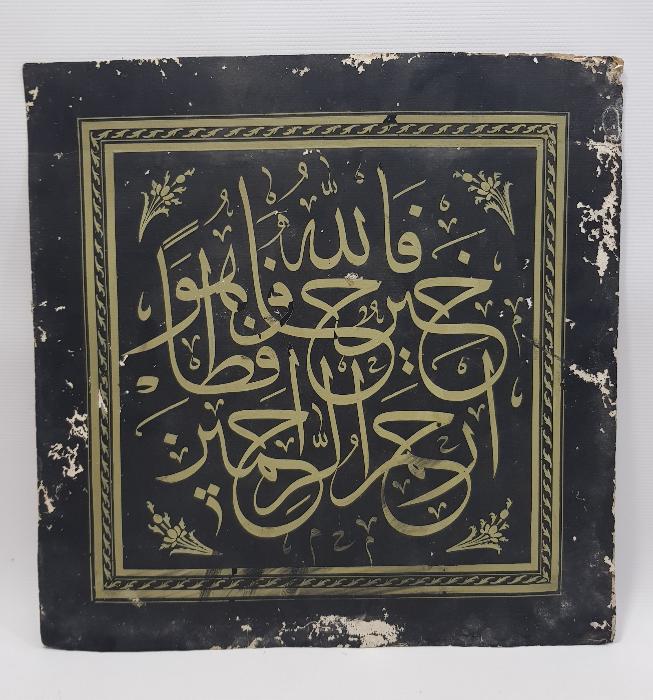 فالله
خير حافظا وهو
ارحم الراحمين